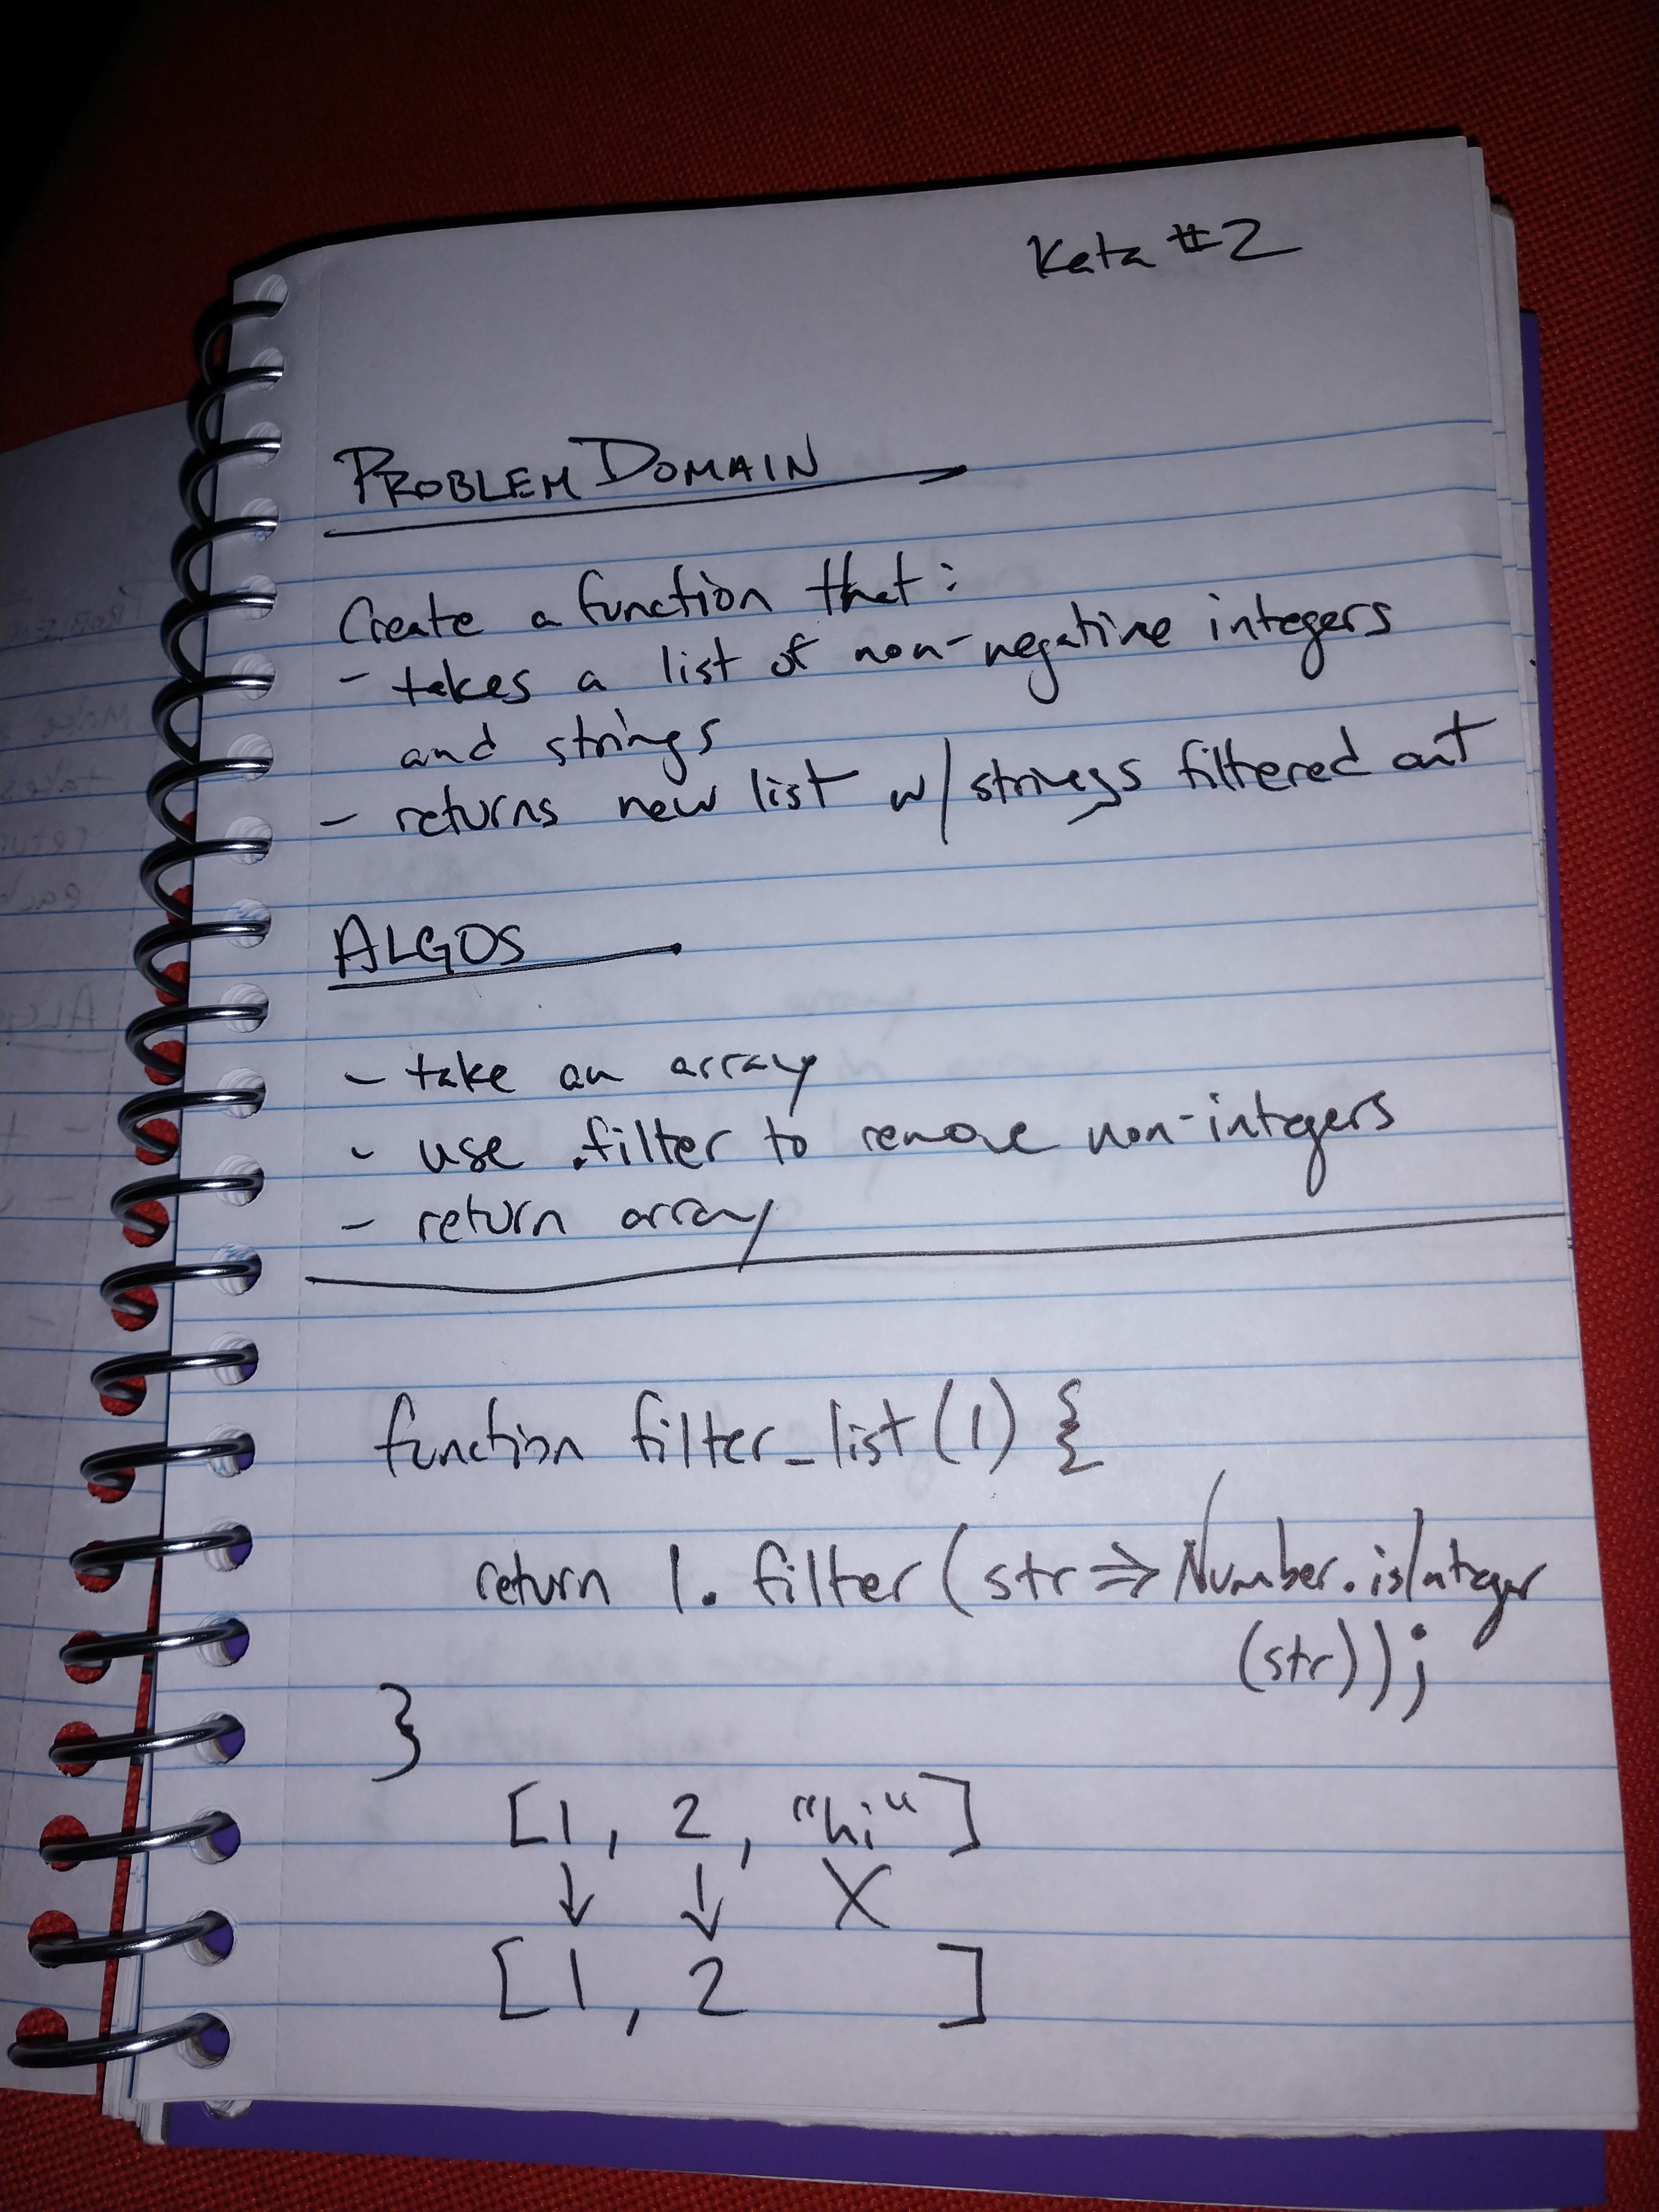 Kata #2
PROBLEM DOMAIN
Create a function that:
- takes a list of non-negative integers
and strings
- returns new list w/ strings filtered out
ALGOS
- take an array
- use .filter to remove non-integers
- return array
function filter_list(l) {
return l.filter(str => Number.isInteger
(str));
}
[1, 2, "hi"]
↓ ↓ X
[1, 2 ]